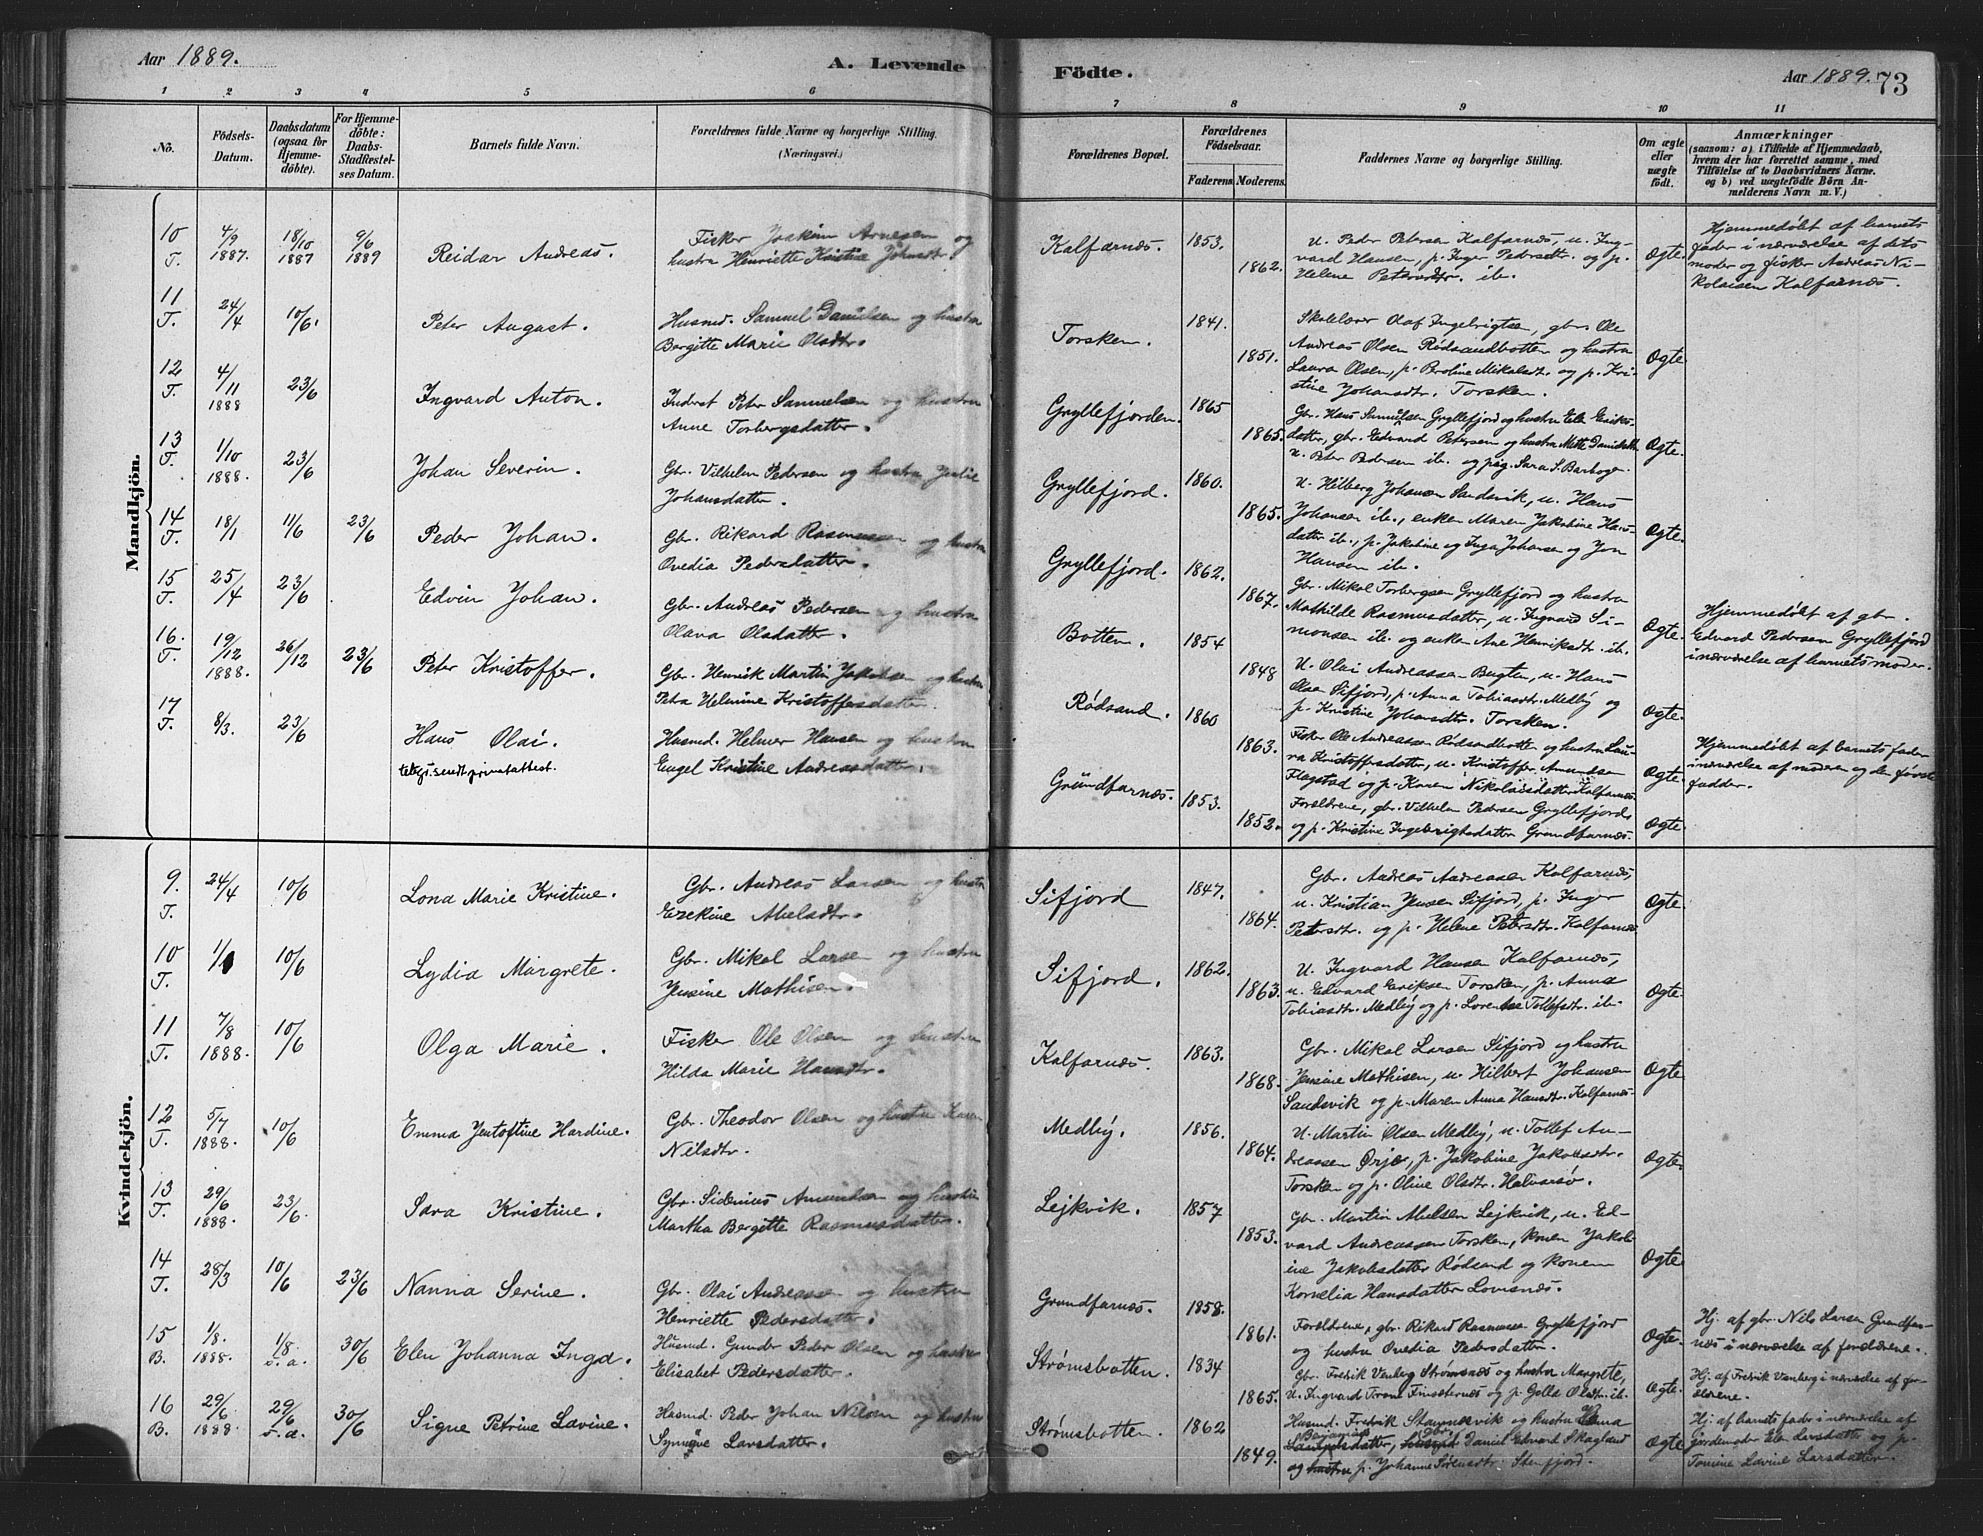 Aar 1889.
A. Levende
Födte.
Aar 1889. 73
1 2 3 4 5 6 7 8 9 10 11
No.
Födsels-
Datum.
Daabsdatum
(ogsaa for
Hjemme-
döbte).
For Hjemme-
döbte:
Daabs-
Stadfæstel-
ses Datum.
Barnets fulde Navn.
Forældrenes fulde Navne og borgerlige Stilling.
(Næringsvei.)
Forældrenes Bopæl.
Forældrenes
Födselsaar.
Faderens. Moderens.
Faddernes Navne og borgerlige Stilling.
Om ægte
eller
uægte
födt.
Anmærkninger
(saasom: a) i Tilfælde af Hjemmedaab,
hvem der har forrettet samme, med
Tilföielse af to Daabsvidners Navne.
og b) ved uægtefödte Börn An-
melderens Navn m. V.)
Mandkjön.
10 T. 4/9 1887. 18/10 1887 9/6 1889 Reidar Andreas.
Fisker Joakim Arnesen og
hustru Henriette Kristine Johnsdtr.
Kalfarnæs. 1853. 1862.
u. Peder Petersen Kalfarnæs, u. Ing-
vard Hansen, p. Inger Pedersdtr. og p.
Helene Petersdtr. ib.
Ægte.
Hjemmedøbt af barnets
fader i nærværelse af dets
moder og fisker Andreas Ni-
kolaisen Kalfarnæs.
11 T. 24/4 10/6. Peter August.
Husmd. Samuel Danielsen og hustru
Bergitte Marie Olsdtr.
Torsken. 1841. 1851.
Skolelærer Olaf Ingebrigtsen, gbr. Ole
Andreas Olsen Rødsandbotten og hustru
Laura Olsen, p. Broline Mikalsdtr. og p. Kri
stine Johansdtr. Torsken.
Ægte
12 T. 4/11 1888 23/6 Ingvard Anton.
Inderst Peter Samuelsen og hustru
Anne Torbergsdatter.
Gryllefjorden. 1865 1865.
Gbr. Hans Samuelsen Gryllefjord og hustru Ele Eriks-
datter, gbr. Edvard Petersen og hustru Mette Danielsdtr.
u. Peter Pedersen ib. og pig. Sara S. Barbogn.
Ægte.
13 T. 1/10 1888. 23/6 Johan Severin.
Gbr. Vilhelm Pedersen og hustru Julie
Johansdatter.
Gryllefjord. 1860. 1865.
U. Hilberg Johansen Sandsvik, u. Hans
Johansen ib., enken Maren Jakobine Hans-
datter ib., p. Jakobine og Inga Johanse og Jon
Hansen ib.
Ægte.
14 T. 18/1 11/6 23/6 Peder Johan.
Gbr. Rikard Rasmussen og hustru
Ovedia Pedersdatter.
Gryllefjord. 1862. 1867.
Gbr. Mikal Torbergsen Gryllefjord og hustru
Mathilde Rasmusdatter, u. Ingvard Si-
monsen ib. og enken Ane Henriksdtr. ib.
Ægte.
Hjemmedøbt af gbr.
Edvard Pedersen Gryllefjord
i nærværelse af barnets moder.
15 T. 25/4 23/6 Edvin Johan.
Gbr. Andreas Pedersen og hustru
Olava Olsdatter.
Botten. 1854 1848
U. Olai Andreassen Bugten, u. Hans
Olsen Sifjord, p. Anna Tobiasdtr. Medby og
p. Kristine Johansdtr. Torsken.
Ægte.
16. T. 19/12 1888. 26/12 23/6 Peter Kristoffer.
Gbr. Henrik Martin Jakobsen og hustru
Petra Helmine Kristoffersdatter.
Rødsand. 1860 1863.
Fisker Ole Andreassen Rødsandbotten og hustru Lau-
ra Kristoffersdatter, u. Kristoffer Amundsen
Flagstad og p. Karen Nikolaisdatter Kalfarnæs.
Ægte
Hjemmedøbt af barnets fader
i nærværelse af moderen og den første
fadder.
17 T. 8/3. 23/6 Hans Olai.
telegr. sendt privatattest.
Husmd. Helmer Hansen og hustru
Engel Kristine Andreasdatter.
Gründfarnæs. 1853. 1852.
Forældrene, gbr. Vilhelm Pedersen Gryllefjord
og p. Kristine Ingebrigtsdatter Grundfarnæs.
Ægte.
Kvindekjön.
9. T. 24/4 10/6 Lona Marie Kristine.
Gbr. Andreas Larsen og hustru
Ezekine Abelsdtr.
Sifjord 1847. 1864.
Gbr. Andreas Andreassen Kalfarnæs,
u. Kristian Jensen Sifjord, p. Inger
Petersdtr. og p. Helene Petersdtr. Kalfarnæs
Ægte.
10 T. 10/6 Lydia Margrete.
Gbr. Mikal Larsen og hustru
Jensine Mathisen.
Sifjord. 1862. 1863.
U. Ingvard Hansen Kalfarnæs,
u. Edvard Eriksen Torsken, p. Anna
Tobiasdtr. Medby og p. Lorentse Tollefsdtr. ib.
Ægte.
11 T. 7/8 1888. 10/6 Olga Marie.
Fisker Ole Olsen og hustru
Hilda Marie Hansdtr.
Kalfarnæs. 1863. 1868.
Gbr. Mikal Larsen Sifjord og hustru
Jensine Mathisen, u. Hilbert Johansen
Sandsvik og p. Maren Anna Hansdtr. Kalfarnæs.
Ægte
12 T. 5/7 1888. 10/6 Emma Jentoftine Hardine.
Gbr. Theodor Olsen og hustru Karen
Nilsdtr.
Medby. 1856. 1864.
U. Martin Olsen Medby, u. Tollef An-
dreassen Ørje, p. Jakobine Jakobsdtr.
Torsken og p. Oline Olsdtr. Halvarsø.
Ægte.
13 T. 29/6 1888. 23/6. Sara Kristine.
Gbr. Sidenius Amundsen og hustru
Martha Bergitte Rasmusdatter.
Lejkvik. 1857 1853.
Gbr. Martin Abelsen Lejkvik, u. Ed-
vard Andreassen Torsken, konen Jakob
ine Jakobsdatter Rødsand og konen
Kornelia Hansdatter Lovisnæs.
Ægte.
14 T. 28/3 10/6 23/6 Nanna Serine.
Gbr. Olai Andreassen og hustru
Henriette Pedersdatter.
Grundfarnæs. 1858. 1861.
Forældrene, gbr. Rikard Rasmussen Gryllefjord
og hustru Ovedia Pedersdatter.
Ægte.
Hj. af gbr. Nils Larsen Grundfar-
næs i nærværelse af forældrene.
15 B. 1/8. 1888. 1/8 s. a. 30/6 Elen Johanna Inga.
Husmd. Gunder Peder Olsen og hustru
Elisabet Pedersdatter.
Strømsbotten. 1834 1865.
Gbr. Fredrik Vanberg Strømsnæs og hustru Margrete,
u. Ingvard Trane Finsæternæs og p. Golla Olsdtr. ib.
Ægte.
Hj. af Fredrik Vanberg i nærværelse af for-
ældrene.
16 B. 29/6 1888. 29/6 s. a. 30/6 Signe Petrine Lavine.
Husmd. Peder Johan Nilsen og hustru
Synnøve Larsdatter.
Strømsbotten. 1862 1849.
Husmd. Fredrik Stamnesvik og hustru Anna
Benjamins gbr.
datter, Daniel Edvard Skagland
og hustru p. Johanne Sørensdtr. Stenfjord.
Ægte
Hj. af barnets fader i nærværelse af
jordemoder Elen Larsdatter og p.
Tomine Lavine Larsdatter.